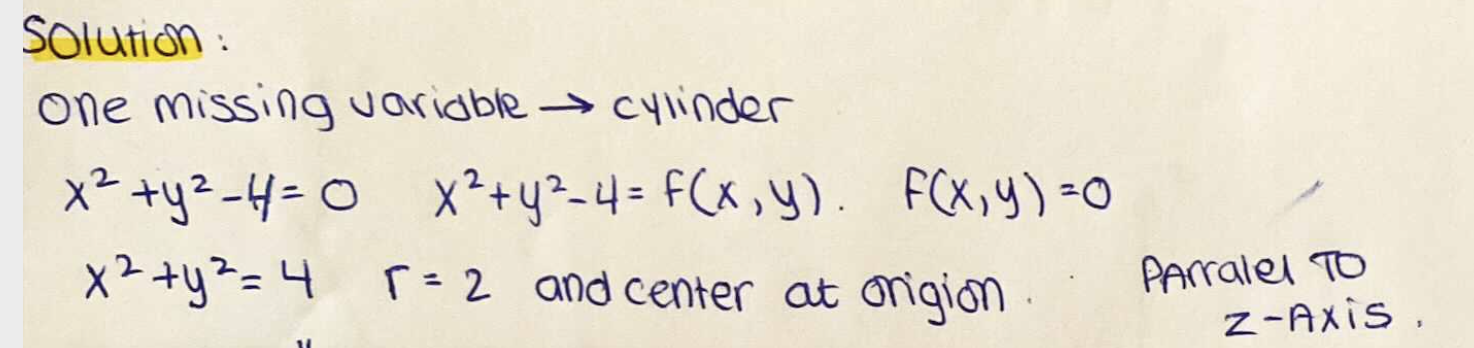 Solution:
One missing variable → cylinder
x² + y² - 4 = 0 x² + y² - 4 = F(x, y). F(x, y) = 0
x² + y² = 4 r = 2 and center at origion.
PArralel TO
z-Axis.